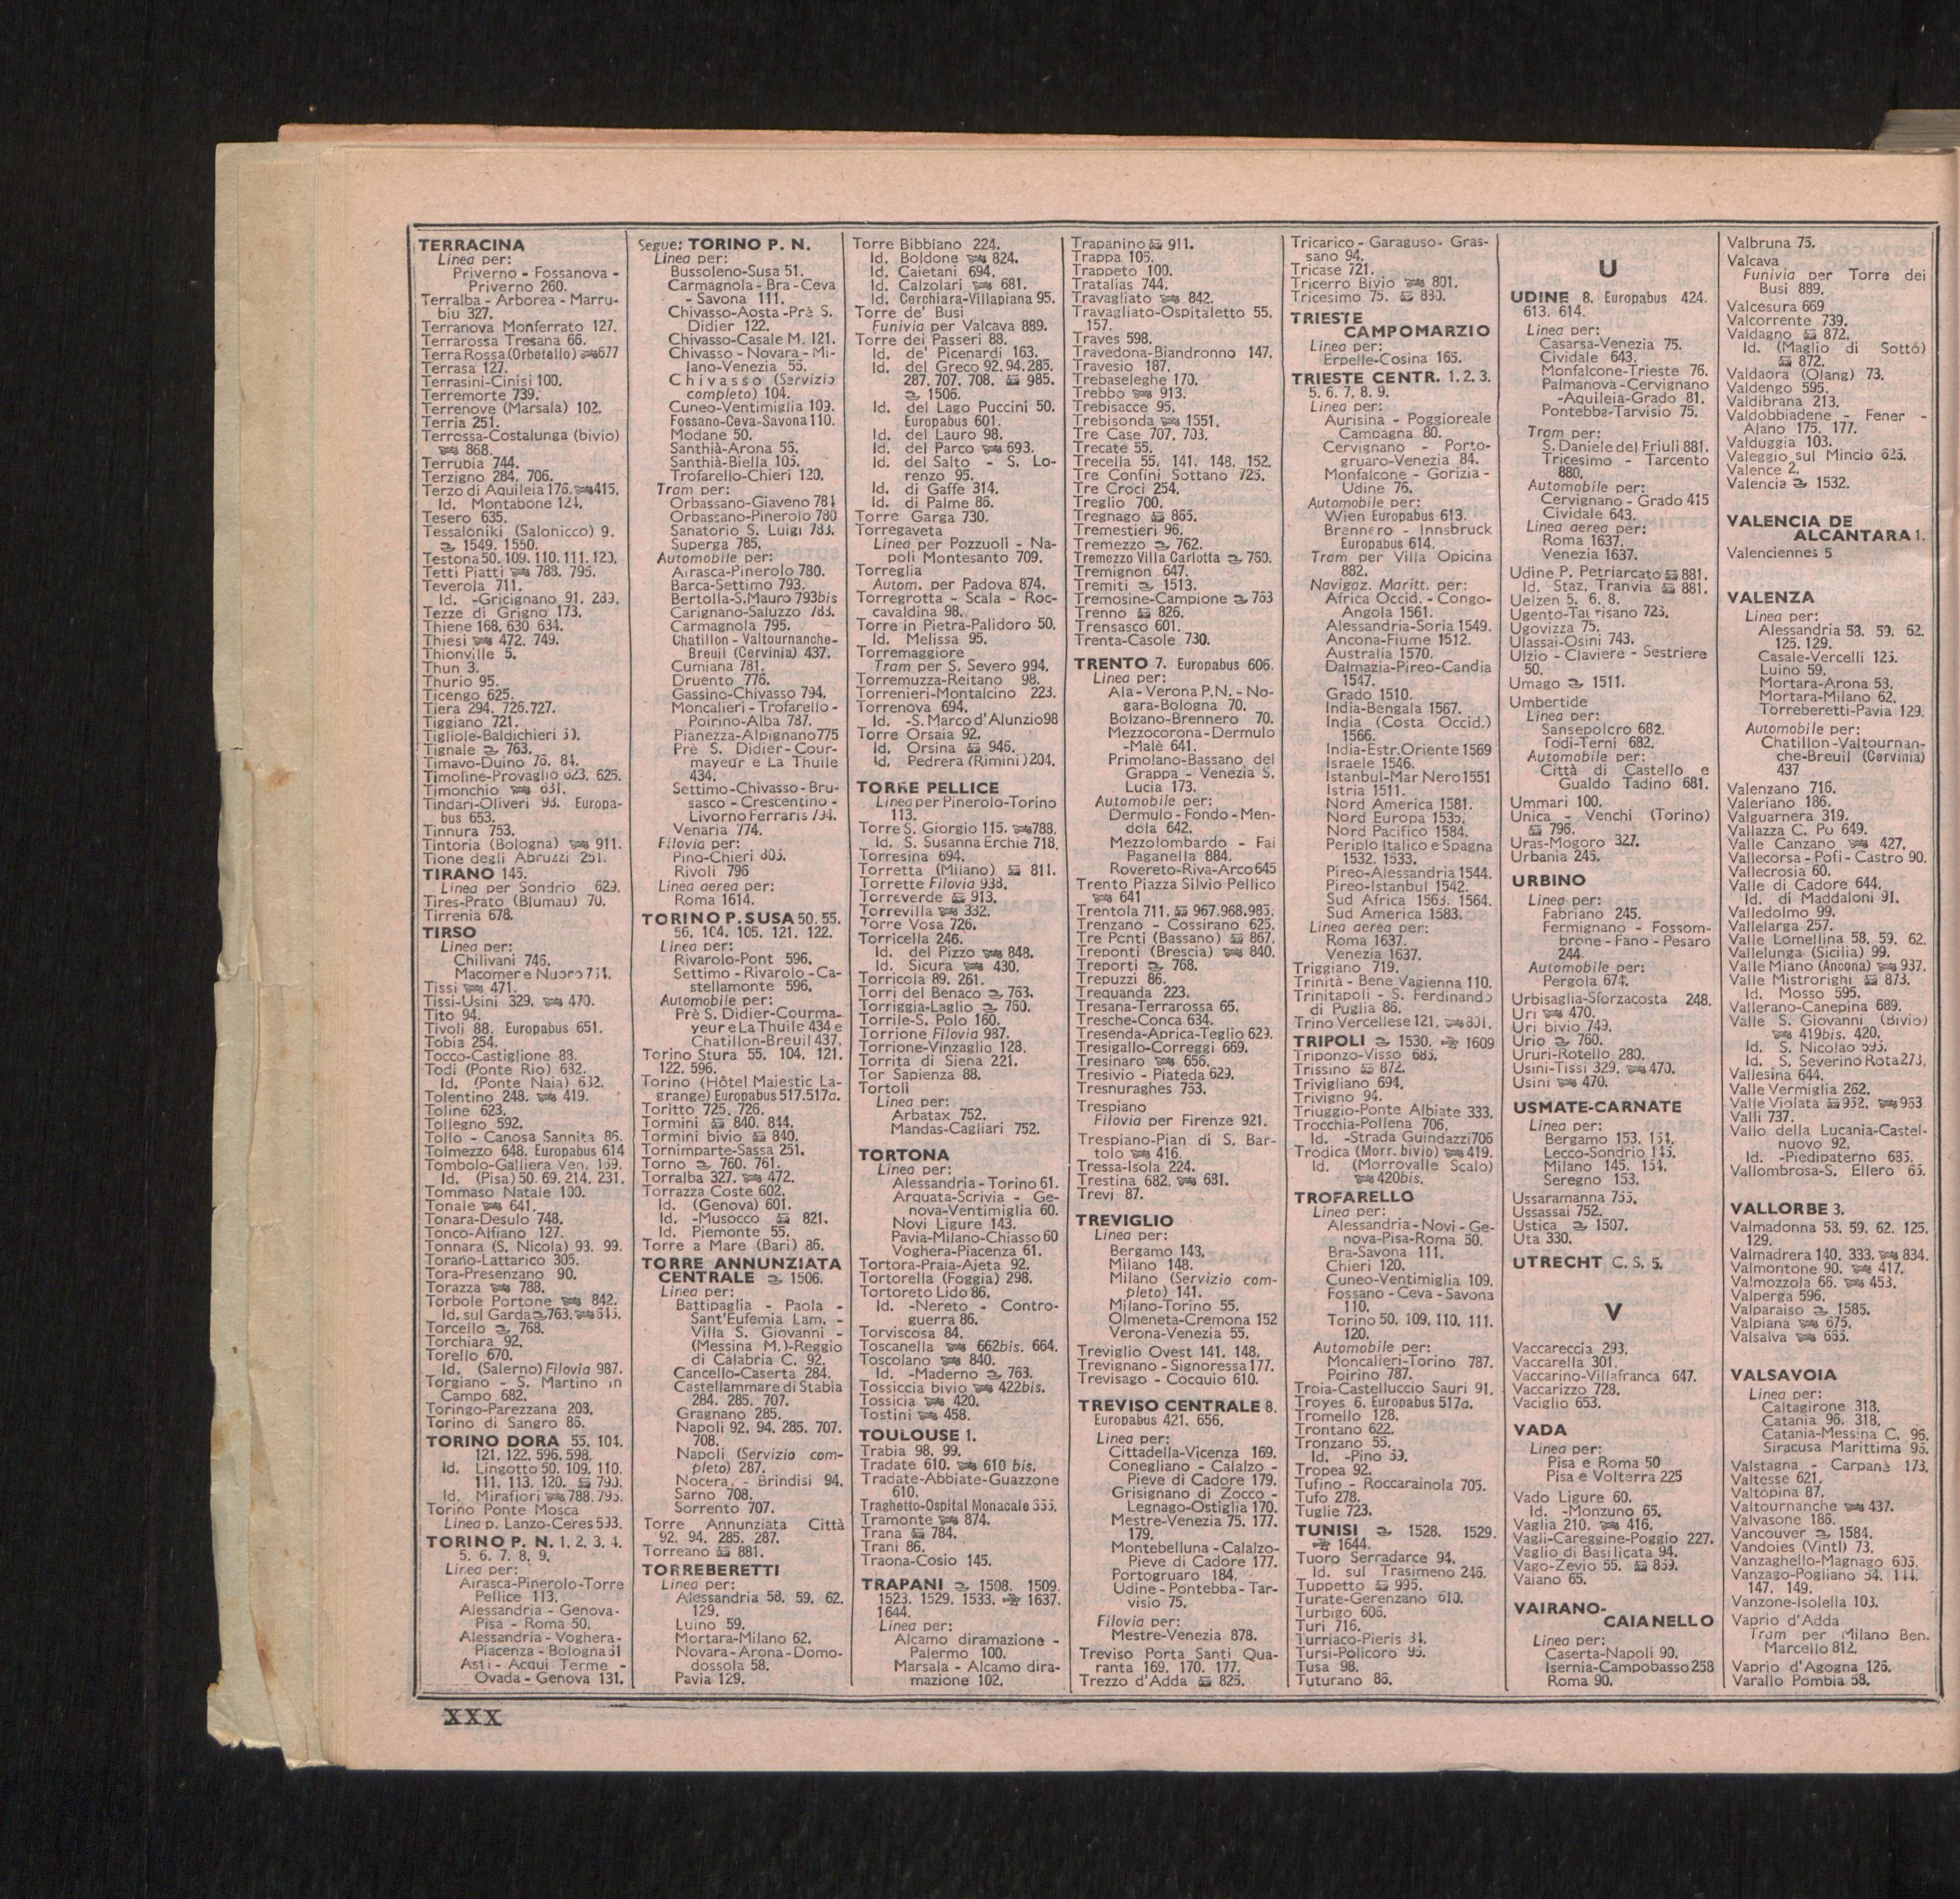 TERRACINA
Linea per:
Priverno - Fossanova -
Priverno 260.
Terralba - Arborea - Marru-
biu 327.
Terranova Monferrato 127.
Terrarossa Tresana 66.
Terra Rossa (Orbetello) 677
Terrasa 127.
Terrasini-Cinisi 100.
Terremorte 739.
Terrenove (Marsala) 102.
Terria 251.
Terrossa-Costalunga (bivio)
868.
Terrubia 744.
Terzigno 284. 706.
Terzo di Aquileia 176. 415.
Id. Montabone 124.
Tesero 635.
Tessaloniki (Salonicco) 9.
1549. 1550.
Testona 50. 109. 110. 111. 120.
Tetti Piatti 788. 795.
Teverola 711.
Id. -Gricignano 91. 289.
Tezze di Grigno 173.
Thiene 168. 630 634.
Thiesi 472. 749.
Thionville 5.
Thun 3.
Thurio 95.
Ticengo 625.
Tiera 294. 726.727.
Tiggiano 721.
Tigliole-Baldichieri 50.
Tignale 763.
Timavo-Duino 76. 84.
Timoline-Provaglio 623. 625.
Timonchio 631.
Tindari-Oliveri 98. Europa-
bus 653.
Tinnura 753.
Tintoria (Bologna) 911.
Tione degli Abruzzi 251.
TIRANO 145.
Linea per Sondrio 629.
Tires-Prato (Blumau) 70.
Tirrenia 678.
TIRSO
Linea per:
Chilivani 746.
Macomer e Nuoro 751.
Tissi 471.
Tissi-Usini 329. 470.
Tito 94.
Tivoli 88. Europabus 651.
Tobia 254.
Tocco-Castiglione 88.
Todi (Ponte Rio) 682.
Id. (Ponte Naia) 682.
Tolentino 248. 419.
Toline 623.
Tollegno 592.
Tollo - Canosa Sannita 86.
Tolmezzo 648. Europabus 614
Tombolo-Galliera Ven. 169.
Id. (Pisa) 50. 69. 214. 231.
Tommaso Natale 100.
Tonale 641.
Tonara-Desulo 748.
Tonco-Alfiano 127.
Tonnara (S. Nicola) 93. 99.
Torano-Lattarico 305.
Tora-Presenzano 90.
Torazza 788.
Torbole Portone 842.
Id. sul Garda 763. 645.
Torcello 768.
Torchiara 92.
Torello 670.
Id. (Salerno) Filovia 987.
Torgiano - S. Martino in
Campo 682.
Toringo-Parezzana 203.
Torino di Sangro 86.
TORINO DORA 55. 104.
121. 122. 596. 598.
Id. Lingotto 50. 109. 110.
111. 113. 120. 793.
Id. Mirafiori 788. 795.
Torino Ponte Mosca
Linea p. Lanzo-Ceres 593.
TORINO P. N. 1. 2. 3. 4.
5. 6. 7. 8. 9.
Linea per:
Airasca-Pinerolo-Torre
Pellice 113.
Alessandria - Genova-
Pisa - Roma 50.
Alessandria - Voghera-
Piacenza - Bologna 61
Asti - Acqui Terme -
Ovada - Genova 131.
Segue: TORINO P. N.
Linea per:
Bussoleno-Susa 51.
Carmagnola - Bra - Ceva
- Savona 111.
Chivasso-Aosta - Prè S.
Didier 122.
Chivasso-Casale M. 121.
Chivasso - Novara - Mi-
lano-Venezia 55.
Chivasso (Servizio
completo) 104.
Cuneo-Ventimiglia 109.
Fossano-Ceva-Savona 110.
Modane 50.
Santhià-Arona 55.
Santhià-Biella 105.
Trofarello-Chieri 120.
Tram per:
Orbassano-Giaveno 781
Orbassano-Pinerolo 780
Sanatorio S. Luigi 783.
Superga 785.
Automobile per:
Airasca-Pinerolo 780.
Barca-Settimo 793.
Bertolla-S.Mauro 793bis
Carignano-Saluzzo 783.
Carmagnola 795.
Chatillon - Valtournanche-
Breuil (Cervinia) 437.
Cumiana 781.
Druento 776.
Gassino-Chivasso 794.
Moncalieri - Trofarello -
Poirino-Alba 787.
Pianezza-Alpignano 775
Prè S. Didier-Cour-
mayeur e La Thuile
434.
Settimo-Chivasso-Bru-
sasco - Crescentino -
Livorno Ferraris 794.
Venaria 774.
Filovia per:
Pino-Chieri 805.
Rivoli 796
Linea aerea per:
Roma 1614.
TORINO P. SUSA 50. 55.
56. 104. 105. 121. 122.
Linea per:
Rivarolo-Pont 596.
Settimo - Rivarolo - Ca-
stellamonte 596.
Automobile per:
Prè S. Didier-Courma-
yeur e La Thuile 434 e
Chatillon-Breuil 437.
Torino Stura 55. 104. 121.
122. 596.
Torino (Hôtel Majestic La-
grange) Europabus 517.517a.
Toritto 725. 726.
Tormini 840. 844.
Tormini bivio 840.
Tornimparte-Sassa 251.
Torno 760. 761.
Torralba 327. 472.
Torrazza Coste 602.
Id. (Genova) 601.
Id. -Musocco 821.
Id. Piemonte 55.
Torre a Mare (Bari) 86.
TORRE ANNUNZIATA
CENTRALE 1506.
Linea per:
Battipaglia - Paola -
Sant'Eufemia Lam. -
Villa S. Giovanni -
(Messina M.)-Reggio
di Calabria C. 92.
Cancello-Caserta 284.
Castellammare di Stabia
284. 285. 707.
Gragnano 285.
Napoli 92. 94. 285. 707.
708.
Napoli (Servizio com-
pleto) 287.
Nocera - Brindisi 94.
Sarno 708.
Sorrento 707.
Torre Annunziata Città
92. 94. 285. 287.
Torreano 881.
TORREBERETTI
Linea per:
Alessandria 58. 59. 62.
129.
Luino 59.
Mortara-Milano 62.
Novara-Arona-Domo-
dossola 58.
Pavia 129.
Torre Bibbiano 224.
Id. Boldone 824.
Id. Caietani 694.
Id. Calzolari 681.
Id. Cerchiara-Villapiana 95.
Torre de' Busi
Funivia per Valcava 889.
Torre dei Passeri 88.
Id. de' Picenardi 163.
Id. del Greco 92. 94. 285.
287. 707. 708. 985.
1506.
Id. del Lago Puccini 50.
Europabus 601.
Id. del Lauro 98.
Id. del Parco 693.
Id. del Salto - S. Lo-
renzo 95.
Id. di Gaffe 314.
Id. di Palme 86.
Torre Garga 730.
Torregaveta
Linea per Pozzuoli - Na-
poli Montesanto 709.
Torreglia
Autom. per Padova 874.
Torregrotta - Scala - Roc-
cavaldina 98.
Torre in Pietra-Palidoro 50.
Id. Melissa 95.
Torremaggiore
Tram per S. Severo 994.
Torremuzza-Reitano 98.
Torrenieri-Montalcino 223.
Torrenova 694.
Id. -S. Marco d'Alunzio 98
Torre Orsaia 92.
Id. Orsina 946.
Id. Pedrera (Rimini) 204.
TORRE PELLICE
Linea per Pinerolo-Torino
113.
Torre S. Giorgio 115. 788.
Id. S. Susanna Erchie 718.
Torresina 694.
Torretta (Milano) 811.
Torrette Filovia 938.
Torreverde 913.
Torrevilla 332.
Torre Vosa 726.
Torricella 246.
Id. del Pizzo 848.
Id. Sicura 430.
Torricola 89. 261.
Torri del Benaco 763.
Torriggia-Laglio 760.
Torrile-S. Polo 160.
Torrione Filovia 987.
Torrione-Vinzaglio 128.
Torrita di Siena 221.
Tor Sapienza 88.
Tortolì
Linea per:
Arbatax 752.
Mandas-Cagliari 752.
TORTONA
Linea per:
Alessandria - Torino 61.
Arquata-Scrivia - Ge-
nova-Ventimiglia 60.
Novi Ligure 143.
Pavia-Milano-Chiasso 60
Voghera-Piacenza 61.
Tortora-Praia-Ajeta 92.
Tortorella (Foggia) 298.
Tortoreto Lido 86.
Id. -Nereto - Contro-
guerra 86.
Torviscosa 84.
Toscanella 662bis. 664.
Toscolano 840.
Id. -Maderno 763.
Tossiccia bivio 422bis.
Tossicia 420.
Tostini 458.
TOULOUSE 1.
Trabia 98. 99.
Tradate 610. 610 bis.
Tradate-Abbiate-Guazzone
610.
Traghetto-Ospital Monacale 555.
Tramonte 874.
Trana 784.
Trani 86.
Traona-Cosio 145.
TRAPANI 1508. 1509.
1523. 1529. 1533. 1637.
1644.
Linea per:
Alcamo diramazione -
Palermo 100.
Marsala - Alcamo dira-
mazione 102.
Trapanino 911.
Trappa 105.
Trappeto 100.
Tratalias 744.
Travagliato 842.
Travagliato-Ospitaletto 55.
157.
Traves 598.
Travedona-Biandronno 147.
Travesio 187.
Trebaseleghe 170.
Trebbo 913.
Trebisacce 95.
Trebisonda 1551.
Tre Case 707. 703.
Trecate 55.
Trecella 55. 141. 148. 152.
Tre Confini Sottano 725.
Tre Croci 254.
Treglio 700.
Tregnago 865.
Tremestieri 96.
Tremezzo 762.
Tremezzo Villa Carlotta 760.
Tremignon 647.
Tremiti 1513.
Tremosine-Campione 763
Trenno 826.
Trensasco 601.
Trenta-Casole 730.
TRENTO 7. Europabus 606.
Linea per:
Ala - Verona P.N. - No-
gara-Bologna 70.
Bolzano-Brennero 70.
Mezzocorona-Dermulo
-Malè 641.
Primolano-Bassano del
Grappa - Venezia S.
Lucia 173.
Automobile per:
Dermulo - Fondo - Men-
dola 642.
Mezzolombardo - Fai
Paganella 884.
Rovereto-Riva-Arco 645
Trento Piazza Silvio Pellico
641
Trentola 711. 967.968.985.
Trenzano - Cossirano 625.
Tre Ponti (Bassano) 867.
Treponti (Brescia) 840.
Treporti 768.
Trepuzzi 86.
Trequanda 223.
Tresana-Terrarossa 66.
Tresche-Conca 634.
Tresenda-Aprica-Teglio 629.
Tresigallo-Correggi 669.
Tresinaro 656.
Tresivio - Piateda 629.
Tresnuraghes 753.
Trespiano
Filovia per Firenze 921.
Trespiano-Pian di S. Bar-
tolo 416.
Tressa-Isola 224.
Trestina 682. 681.
Trevi 87.
TREVIGLIO
Linea per:
Bergamo 143.
Milano 148.
Milano (Servizio com-
pleto) 141.
Milano-Torino 55.
Olmeneta-Cremona 152
Verona-Venezia 55.
Treviglio Ovest 141. 148.
Trevignano - Signoressa 177.
Trevisago - Cocquio 610.
TREVISO CENTRALE 8.
Europabus 421. 656.
Linea per:
Cittadella-Vicenza 169.
Conegliano - Calalzo -
Pieve di Cadore 179.
Grisignano di Zocco -
Legnago-Ostiglia 170.
Mestre-Venezia 75. 177.
179.
Montebelluna - Calalzo-
Pieve di Cadore 177.
Portogruaro 184.
Udine - Pontebba - Tar-
visio 75.
Filovia per:
Mestre-Venezia 878.
Treviso Porta Santi Qua-
ranta 169. 170. 177.
Trezzo d'Adda 825.
Tricarico - Garaguso - Gras-
sano 94.
Tricase 721.
Tricerro Bivio 801.
Tricesimo 75. 880.
TRIESTE
CAMPOMARZIO
Linea per:
Erpelle-Cosina 165.
TRIESTE CENTR. 1. 2. 3.
5. 6. 7. 8. 9.
Linea per:
Aurisina - Poggioreale
Campagna 80.
Cervignano - Porto-
gruaro-Venezia 84.
Monfalcone - Gorizia -
Udine 76.
Automobile per:
Wien Europabus 613.
Brennero - Innsbruck
Europabus 614.
Tram per Villa Opicina
882.
Navigaz. Maritt. per:
Africa Occid. - Congo-
Angola 1561.
Alessandria-Soria 1549.
Ancona-Fiume 1512.
Australia 1570.
Dalmazia-Pireo-Candia
1547.
Grado 1510.
India-Bengala 1567.
India (Costa Occid.)
1566.
India-Estr.Oriente 1569
Israele 1546.
Istanbul-Mar Nero 1551
Istria 1511.
Nord America 1581.
Nord Europa 1535.
Nord Pacifico 1584.
Periplo Italico e Spagna
1532. 1533.
Pireo-Alessandria 1544.
Pireo-Istanbul 1542.
Sud Africa 1563. 1564.
Sud America 1583.
Linea aerea per:
Roma 1637.
Venezia 1637.
Triggiano 719.
Trinità - Bene Vagienna 110.
Trinitapoli - S. Ferdinando
di Puglia 86.
Trino Vercellese 121. 801.
TRIPOLI 1530. 1609
Triponzo-Visso 683.
Trissino 872.
Trivigliano 694.
Trivigno 94.
Triuggio-Ponte Albiate 333.
Trocchia-Pollena 706.
Id. -Strada Guindazzi 706
Trodica (Morr. bivio) 419.
Id. (Morrovalle Scalo)
420bis.
TROFARELLO
Linea per:
Alessandria - Novi - Ge-
nova-Pisa-Roma 50.
Bra-Savona 111.
Chieri 120.
Cuneo-Ventimiglia 109.
Fossano - Ceva - Savona
110.
Torino 50. 109. 110. 111.
120.
Automobile per:
Moncalieri-Torino 787.
Poirino 787.
Troia-Castelluccio Sauri 91.
Troyes 6. Europabus 517a.
Tromello 128.
Trontano 622.
Tronzano 55.
Id. -Pino 59.
Tropea 92.
Tufino - Roccarainola 705.
Tufo 278.
Tuglie 723.
TUNISI 1528. 1529.
1644.
Tuoro Serradarce 94.
Id. sul Trasimeno 246.
Tuppetto 995.
Turate-Gerenzano 610.
Turbigo 606.
Turi 716.
Turriaco-Pieris 84.
Tursi-Policoro 95.
Tusa 98.
Tuturano 86.
U
UDINE 8. Europabus 424.
613. 614.
Linea per:
Casarsa-Venezia 75.
Cividale 643.
Monfalcone-Trieste 76.
Palmanova - Cervignano
-Aquileia-Grado 81.
Pontebba-Tarvisio 75.
Tram per:
S. Daniele del Friuli 881.
Tricesimo - Tarcento
880.
Automobile per:
Cervignano - Grado 415
Cividale 643.
Linea aerea per:
Roma 1637.
Venezia 1637.
Udine P. Petriarcato 881.
Id. Staz. Tranvia 881.
Uelzen 5. 6. 8.
Ugento-Taurisano 723.
Ugovizza 75.
Ulassai-Osini 743.
Ulzio - Claviere - Sestriere
50.
Umago 1511.
Umbertide
Linea per:
Sansepolcro 682.
Todi-Terni 682.
Automobile per:
Città di Castello e
Gualdo Tadino 681.
Ummari 100.
Unica - Venchi (Torino)
796.
Uras-Mogoro 327.
Urbania 245.
URBINO
Linea per:
Fabriano 245.
Fermignano - Fossom-
brone - Fano - Pesaro
244.
Automobile per:
Pergola 674.
Urbisaglia-Sforzacosta 248.
Uri 470.
Uri bivio 749.
Urio 760.
Ururi-Rotello 280.
Usini-Tissi 329. 470.
Usini 470.
USMATE-CARNATE
Linea per:
Bergamo 153. 154.
Lecco-Sondrio 145.
Milano 145. 154.
Seregno 153.
Ussaramanna 755.
Ussassai 752.
Ustica 1507.
Uta 330.
UTRECHT C. S. 5.
V
Vaccareccia 293.
Vaccarella 301.
Vaccarino-Villafranca 647.
Vaccarizzo 728.
Vaciglio 653.
VADA
Linea per:
Pisa e Roma 50
Pisa e Volterra 225
Vado Ligure 60.
Id. -Monzuno 65.
Vaglia 210. 416.
Vagli-Careggine-Poggio 227.
Vaglio di Basilicata 94.
Vago-Zevio 55. 859.
Vaiano 65.
VAIRANO-
CAIANELLO
Linea per:
Caserta-Napoli 90.
Isernia-Campobasso 258
Roma 90.
Valbruna 75.
Valcava
Funivia per Torre dei
Busi 889.
Valcesura 669
Valcorrente 739.
Valdagno 872.
Id. (Maglio di Sotto)
872.
Valdaora (Olang) 73.
Valdengo 595.
Valdibrana 213.
Valdobbiadene - Fener -
Alano 175. 177.
Valduggia 103.
Valeggio sul Mincio 625.
Valence 2.
Valencia 1532.
VALENCIA DE
ALCANTARA 1.
Valenciennes 5
VALENZA
Linea per:
Alessandria 58. 59. 62.
125. 129.
Casale-Vercelli 125.
Luino 59.
Mortara-Arona 58.
Mortara-Milano 62.
Torreberetti-Pavia 129.
Automobile per:
Chatillon-Valtournan-
che-Breuil (Cervinia)
437
Valenzano 716.
Valeriano 186.
Valguarnera 319.
Vallazza C. Po 649.
Valle Canzano 427.
Vallecorsa - Pofi - Castro 90.
Vallecrosia 60.
Valle di Cadore 644.
Id. di Maddaloni 91.
Valledolmo 99.
Vallelarga 257.
Valle Lomellina 58. 59. 62.
Vallelunga (Sicilia) 99.
Valle Miano (Ancona) 937.
Valle Mistrorighi 873.
Id. Mosso 595.
Vallerano-Canepina 689.
Valle S. Giovanni (Bivio)
419bis. 420.
Id. S. Nicolao 595.
Id. S. Severino Rota 273.
Vallesina 644.
Valle Vermiglia 262.
Valle Violata 952. 963
Valli 737.
Vallo della Lucania-Castel-
nuovo 92.
Id. -Piedipaterno 685.
Vallombrosa-S. Ellero 65.
VALLORBE 3.
Valmadonna 58. 59. 62. 125.
129.
Valmadrera 140. 333. 834.
Valmontone 90. 417.
Valmozzola 66. 453.
Valperga 596.
Valparaiso 1585.
Valpiana 675.
Valsalva 665.
VALSAVOIA
Linea per:
Caltagirone 318.
Catania 96. 318.
Catania-Messina C. 96.
Siracusa Marittima 96.
Valstagna - Carpanè 173.
Valtesse 621.
Valtopina 87.
Valtournanche 437.
Valvasone 186.
Vancouver 1584.
Vandoies (Vintl) 73.
Vanzaghello-Magnago 605.
Vanzago-Pogliano 54. 144.
147. 149.
Vanzone-Isolella 103.
Vaprio d'Adda
Tram per Milano Ben.
Marcello 812.
Vaprio d'Agogna 126.
Varallo Pombia 58.
XXX